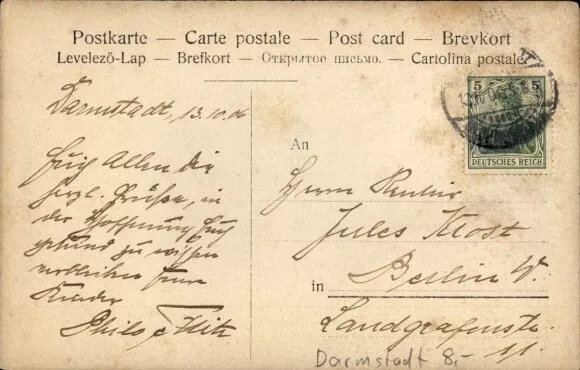 Postkarte — Carte postale — Post card — Brevkort
Levelező-Lap — Brefkort — Открытое письмо. — Cartolina postale.
5 5
DEUTSCHES REICH
Darmstadt, 13.10.06
Euch Allen die
herzl. Grüße, in
der Hoffnung Euch
gesund zu wissen
verbleiben Eure
Kinder
Philo & Fritz
An
Herrn Rentier
Jules Klost
in Berlin W.
Landgrafenstr.
11.
Darmstadt 8,-